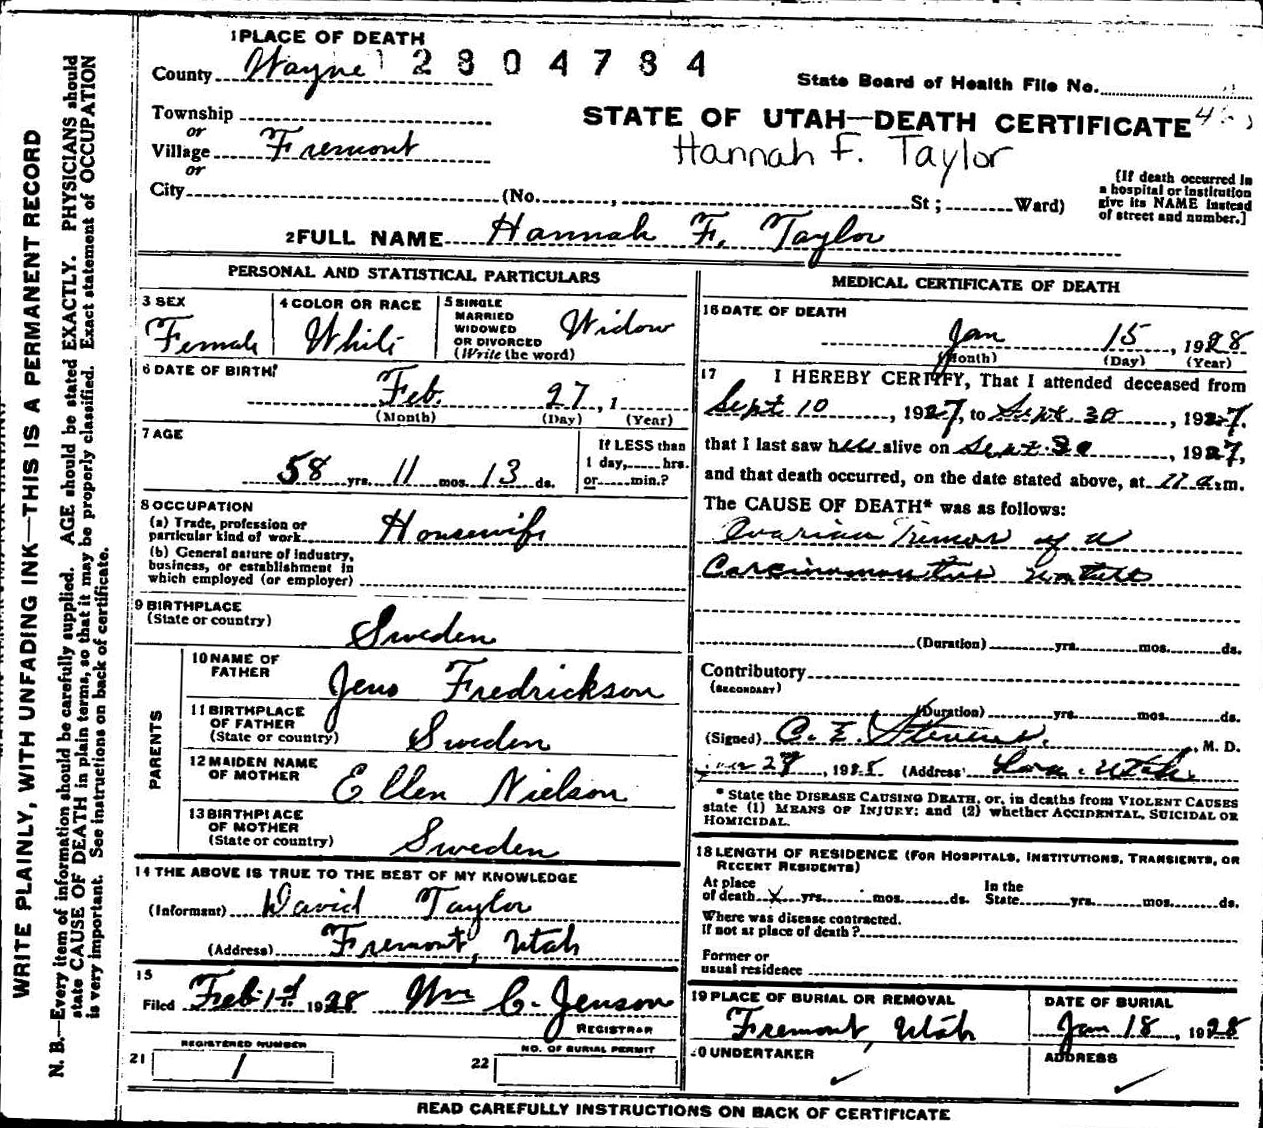 1 PLACE OF DEATH
County Wayne 1 2804784
State Board of Health File No.
Township
or
STATE OF UTAH—DEATH CERTIFICATE
Village Fremont
Hannah F. Taylor
or
City (No. , St ; Ward)
[If death occurred in
a hospital or institution
give its NAME instead
of street and number.]
2 FULL NAME Hannah F. Taylor
PERSONAL AND STATISTICAL PARTICULARS
3 SEX
Female
4 COLOR OR RACE
White
5 SINGLE
MARRIED
WIDOWED
OR DIVORCED
(Write the word)
Widow
6 DATE OF BIRTH
Feb. 27, 1
(Month) (Day) (Year)
7 AGE
58 yrs. 11 mos. 13 ds.
If LESS than
1 day, hrs.
or min.?
8 OCCUPATION
(a) Trade, profession or
particular kind of work Housewife
(b) General nature of industry,
business, or establishment in
which employed (or employer)
9 BIRTHPLACE
(State or country)
Sweden
PARENTS
10 NAME OF
FATHER
Jens Fredrickson
11 BIRTHPLACE
OF FATHER
(State or country)
Sweden
12 MAIDEN NAME
OF MOTHER
Ellen Nielson
13 BIRTHPLACE
OF MOTHER
(State or country)
Sweden
14 THE ABOVE IS TRUE TO THE BEST OF MY KNOWLEDGE
(Informant) David Taylor
(Address) Fremont, Utah
15
Filed Feb 1st 1928 Wm C. Jenson
REGISTRAR
21 REGISTERED NUMBER
1
22 NO. OF BURIAL PERMIT
MEDICAL CERTIFICATE OF DEATH
16 DATE OF DEATH
Jan 15, 1928
(Month) (Day) (Year)
17 I HEREBY CERTIFY, That I attended deceased from
Sept 10, 1927, to Sept. 30, 1927.
that I last saw her alive on Sept. 30, 1927,
and that death occurred, on the date stated above, at 11 a.m.
The CAUSE OF DEATH* was as follows:
Ovarian Tumor of a
Carcinomantus
(Duration) yrs. mos. ds.
Contributory
(SECONDARY)
(Duration) yrs. mos. ds.
(Signed) C. E. Stevens, M. D.
28, 1928 (Address) Loa. Utah
* State the DISEASE CAUSING DEATH, or, in deaths from VIOLENT CAUSES
state (1) MEANS OF INJURY; and (2) whether ACCIDENTAL, SUICIDAL OR
HOMICIDAL.
18 LENGTH OF RESIDENCE (FOR HOSPITALS, INSTITUTIONS, TRANSIENTS, OR
RECENT RESIDENTS)
At place
of death X yrs. mos. ds.
In the
State yrs. mos. ds.
Where was disease contracted.
if not at place of death?
Former or
usual residence
19 PLACE OF BURIAL OR REMOVAL
Fremont, Utah
DATE OF BURIAL
Jan 18, 1928
20 UNDERTAKER
✓
ADDRESS
✓
READ CAREFULLY INSTRUCTIONS ON BACK OF CERTIFICATE
WRITE PLAINLY, WITH UNFADING INK—THIS IS A PERMANENT RECORD
N. B.—Every item of information should be carefully supplied. AGE should be stated EXACTLY. PHYSICIANS should
state CAUSE OF DEATH in plain terms, so that it may be properly classified. Exact statement of OCCUPATION
is very important. See instructions on back of certificate.